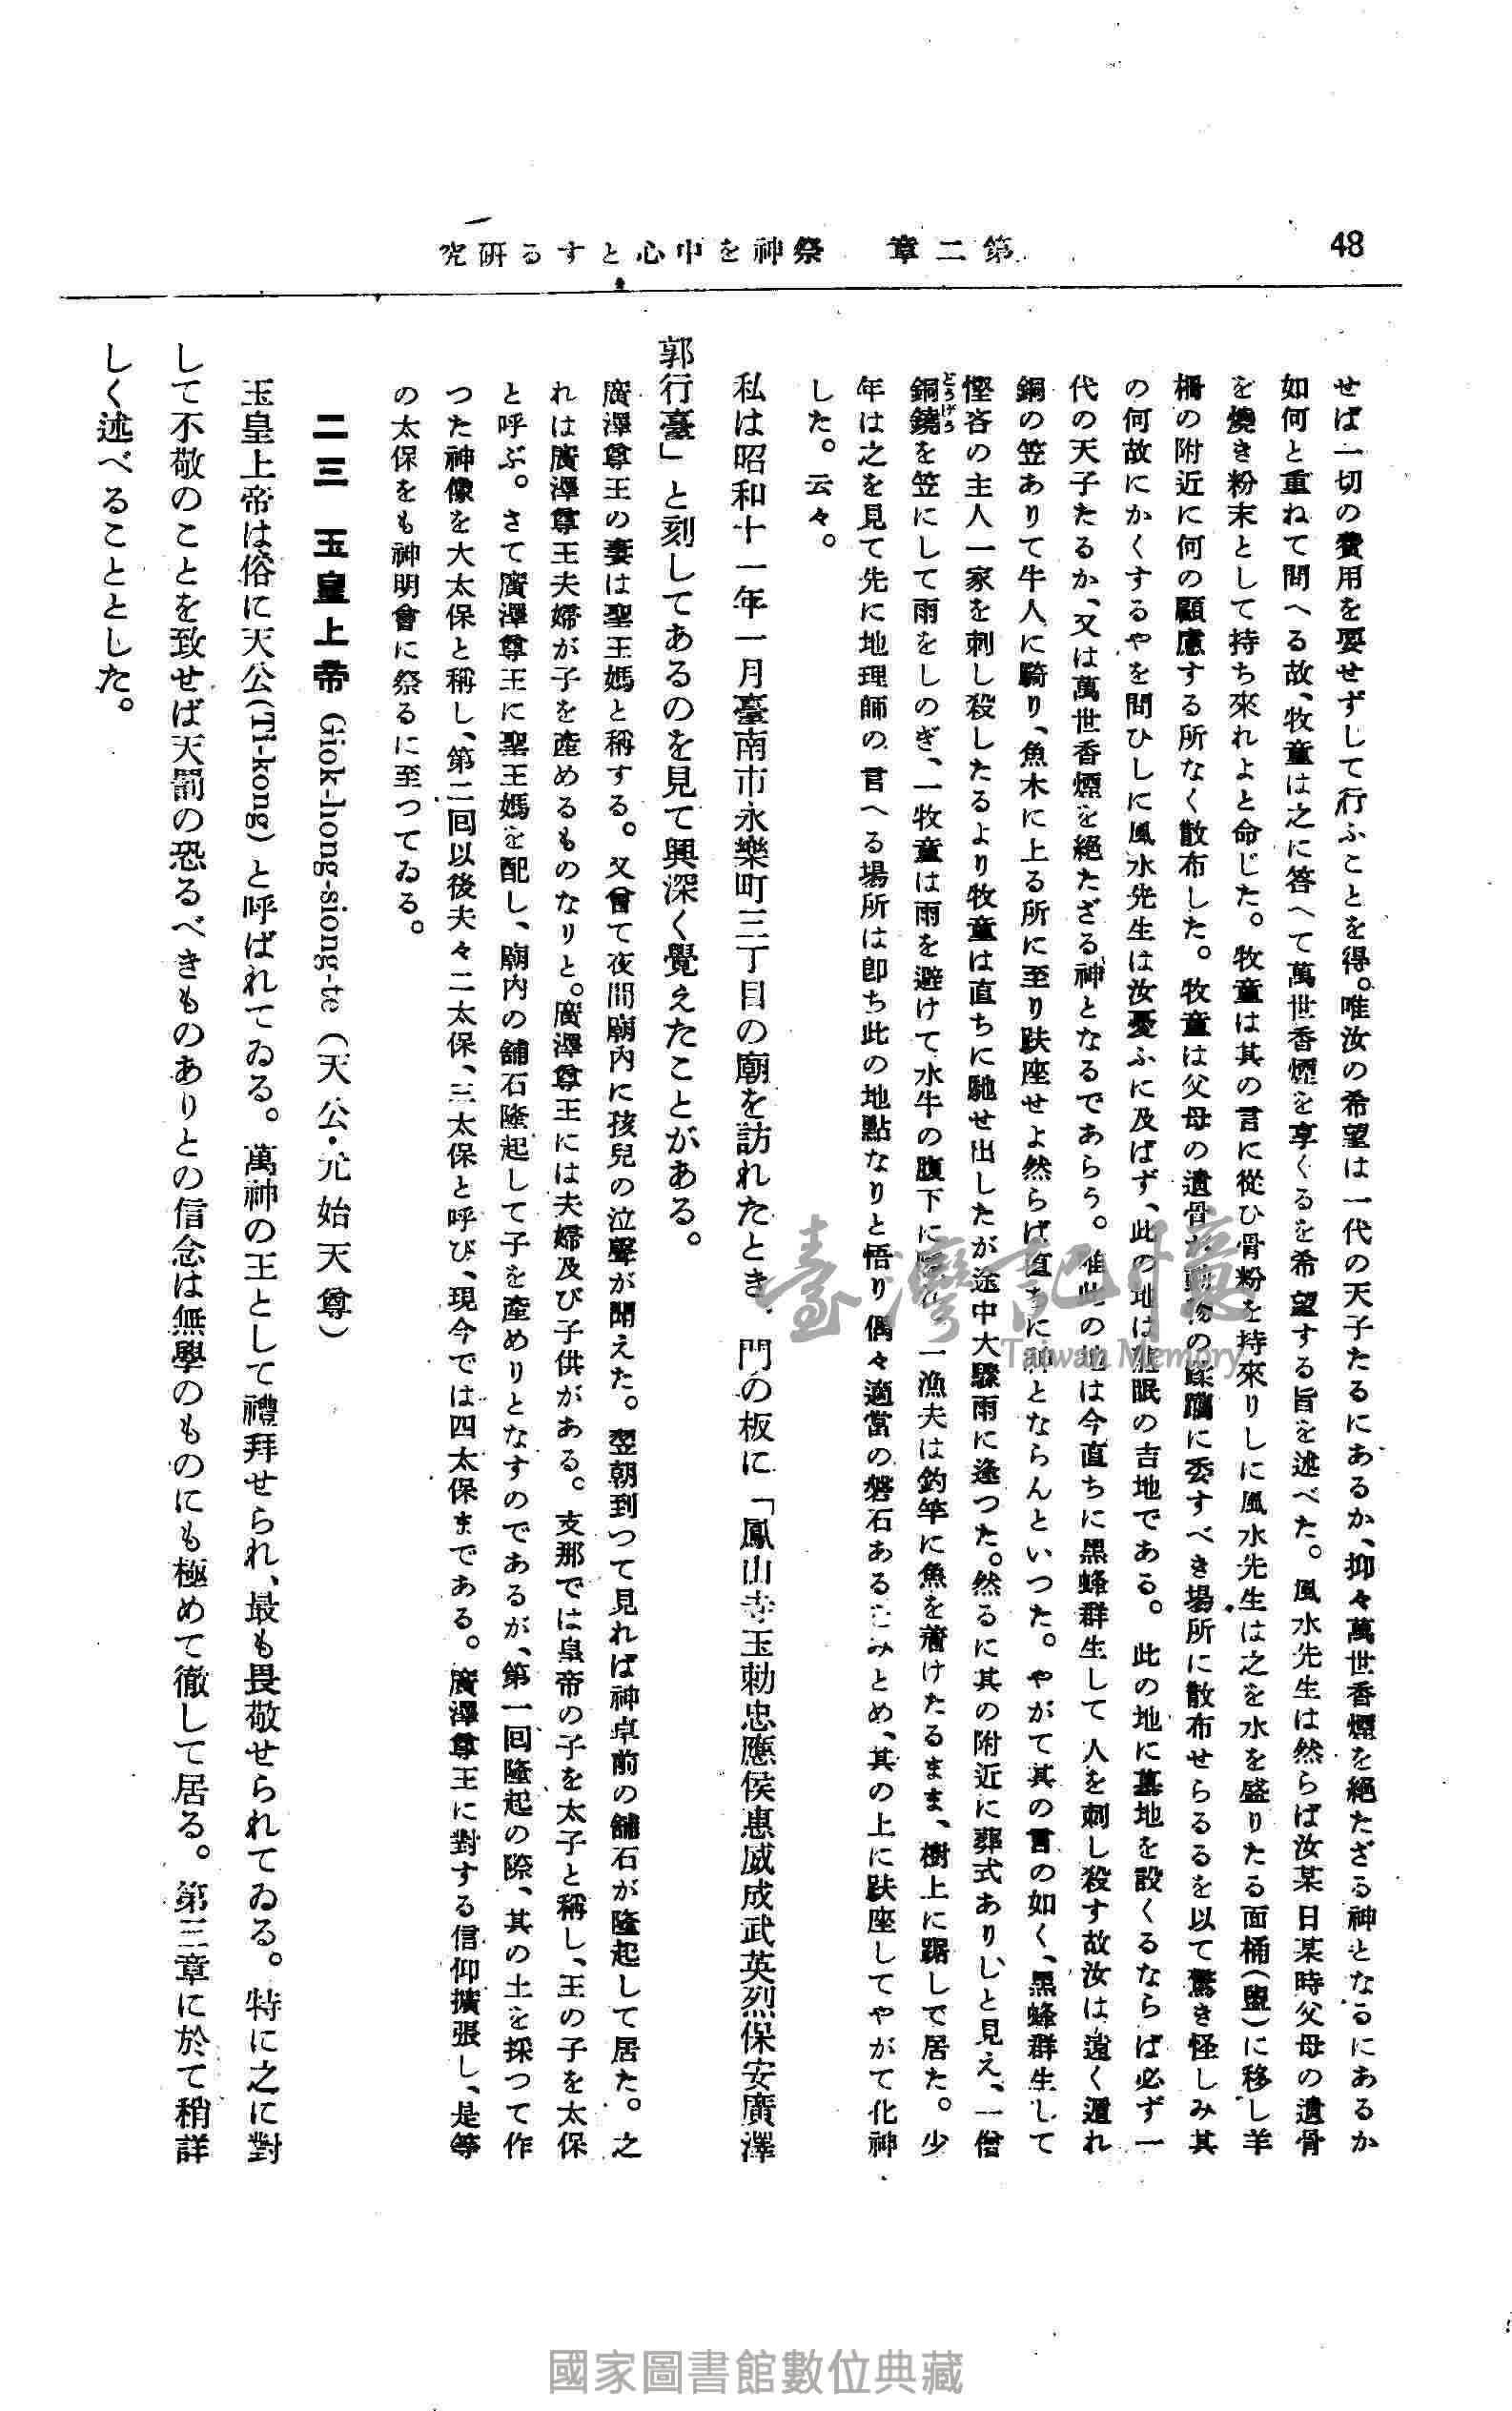 48
第二章　祭神を中心とする研究
せば一切の費用を要せずして行ふことを得。唯汝の希望は一代の天子たるにあるか、抑々萬世香煙を絕たざる神となるにあるか
如何と重ねて問へる故、牧童は之に答へて萬世香煙を享くるを希望する旨を述べた。風水先生は然らば汝某日某時父母の遺骨
を燒き粉末として持ち來れよと命じた。牧童は其の言に從ひ骨粉を持來りしに風水先生は之を水を盛りたる面桶(盥)に移し羊
柵の附近に何の顧慮する所なく散布した。牧童は父母の遺骨が動物の蹂躪に委すべき場所に散布せらるるを以て驚き怪しみ其
の何故にかくするやを問ひしに風水先生は汝憂ふに及ばず、此の地は眠の吉地である。此の地に墓地を設くるならば必ず一
代の天子たるか、又は萬世香煙を絕たざる神となるであらう。唯此の地は今直ちに黑蜂群生して人を刺し殺す故汝は遠く遁れ
銅の笠ありて牛人に騎り、魚木に上る所に至り趺座せよ然らば直ちに神とならんといつた。やがて其の言の如く、黑蜂群生して
慳吝の主人一家を刺し殺したるより牧童は直ちに馳せ出したが途中大驟雨に逢つた。然るに其の附近に葬式ありしと見え、一僧
銅鐃どうげうを笠にして雨をしのぎ、一牧童は雨を避けて水牛の腹下に一漁夫は釣竿に魚を着けたるまま、樹上に踞して居た。少
年は之を見て先に地理師の言へる場所は卽ち此の地點なりと悟り偶々適當の磐石あるをみとめ、其の上に趺座してやがて化神
した。云々。
私は昭和十一年一月臺南市永樂町三丁目の廟を訪れたとき、門の板に「鳳山寺玉勅忠應侯惠威成武英烈保安廣澤
郭行臺」と刻してあるのを見て興深く覺えたことがある。
廣澤尊王の妻は聖王媽と稱する。又曾て夜間廟內に孩兒の泣聲が聞えた。翌朝到つて見れば神卓前の舖石が隆起して居た。之
れは廣澤尊王夫婦が子を產めるものなりと。廣澤尊王には夫婦及び子供がある。支那では皇帝の子を太子と稱し、王の子を太保
と呼ぶ。さて廣澤尊王に聖王媽を配し、廟內の舖石隆起して子を產めりとなすのであるが、第一回隆起の際、其の土を採つて作
つた神像を大太保と稱し、第二回以後夫々二太保、三太保と呼び、現今では四太保まである。廣澤尊王に對する信仰擴張し、是等
の太保をも神明會に祭るに至つてゐる。
二三　玉皇上帝 Giok-hong-siong-te（天公・元始天尊）
玉皇上帝は俗に天公(Ti-kong)と呼ばれてゐる。萬神の王として禮拜せられ、最も畏敬せられてゐる。特に之に對
して不敬のことを致せば天罰の恐るべきものありとの信念は無學のものにも極めて徹して居る。第三章に於て稍詳
しく述べることとした。
臺灣記憶
Taiwan Memory
國家圖書館數位典藏